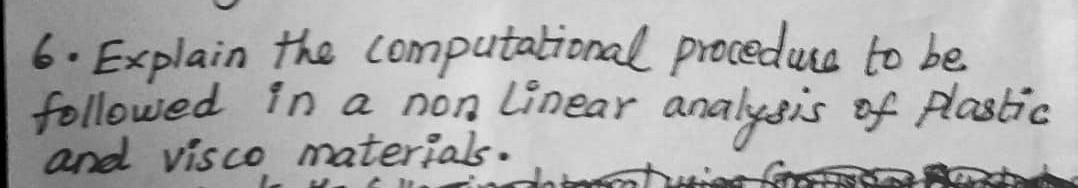 6. Explain the computational procedure to be
followed in a non Linear analysis of Plastic
and visco materials.